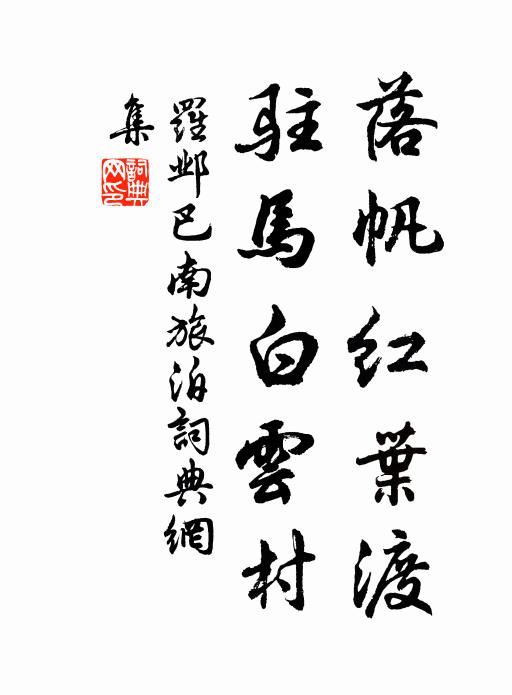 落帆紅葉渡
駐馬白雲村
羅鄴巴南旅泊詞典網
集
詞典網印